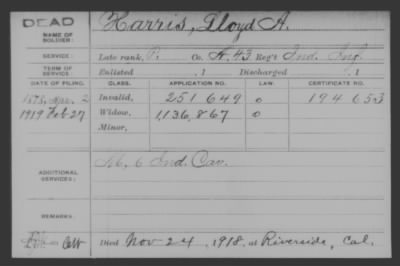 DEAD
NAME OF SOLDIER: Harris, Lloyd A.
SERVICE: Late rank, P. Co. K, 43 Reg't Ind. Inf.
TERM OF SERVICE: Enlisted , 1 Discharged , 1
DATE OF FILING. CLASS. APPLICATION NO. LAW. CERTIFICATE NO.
1878, Apr. 2 Invalid, 251 649 o 194 653
1919 Feb 27 Widow, 1,136,867 o
Minor,
ADDITIONAL SERVICES: M, 6 Ind. Cav.
REMARKS:
Died Nov 24, 1918, at Riverside, Cal.